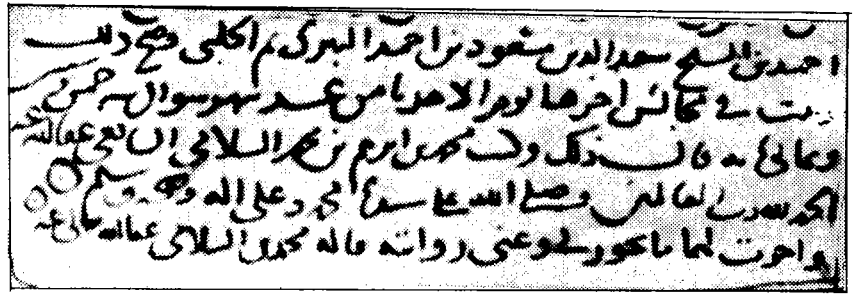 احمد بن الشيخ سعد الدين مسعود بن احمد البـ‍ـركي ثم الحلبي وصح ذلك
وثبت في مجالس اخرها يوم الاحد ثامن عشر شهر شوال سنة خمس
وثماني مائة قال ذلك وكتبه محمد بن ابراهيم بن محمد السلامي الشافعي عفا الله عنه
الحمد لله رب العالمين وصلى الله على سيدنا محمد وعلى اله وصحبه وسلم
واجزت لهما ما يجوز لي وعني روايته قاله محمد السلامي عفا الله تعالى عنه